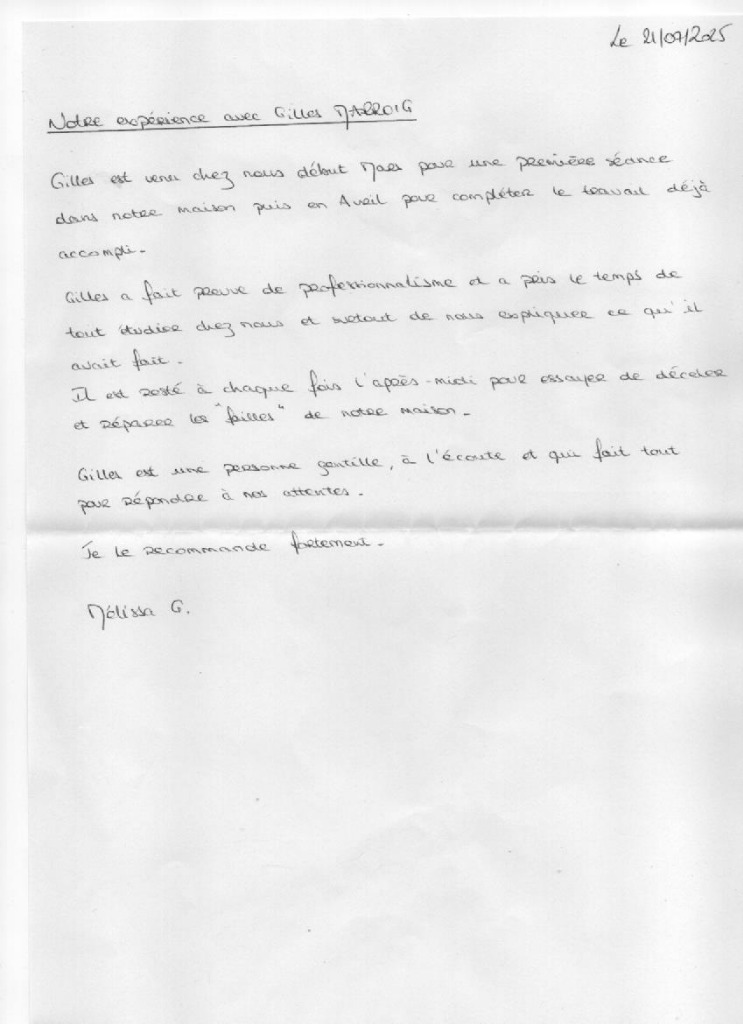 Le 21/07/2025
Notre expérience avec Gilles MARROIG
Gilles est venu chez nous début Mars pour une première séance
dans notre maison puis en Avril pour compléter le travail déjà
accompli.
Gilles a fait preuve de professionnalisme et a pris le temps de
tout étudier chez nous et surtout de nous expliquer ce qu'il
avait fait.
Il est resté à chaque fois l'après-midi pour essayer de déceler
et réparer les "failles" de notre maison.
Gilles est une personne gentille, à l'écoute et qui fait tout
pour répondre à nos attentes.
Je le recommande fortement.
Mélissa G.